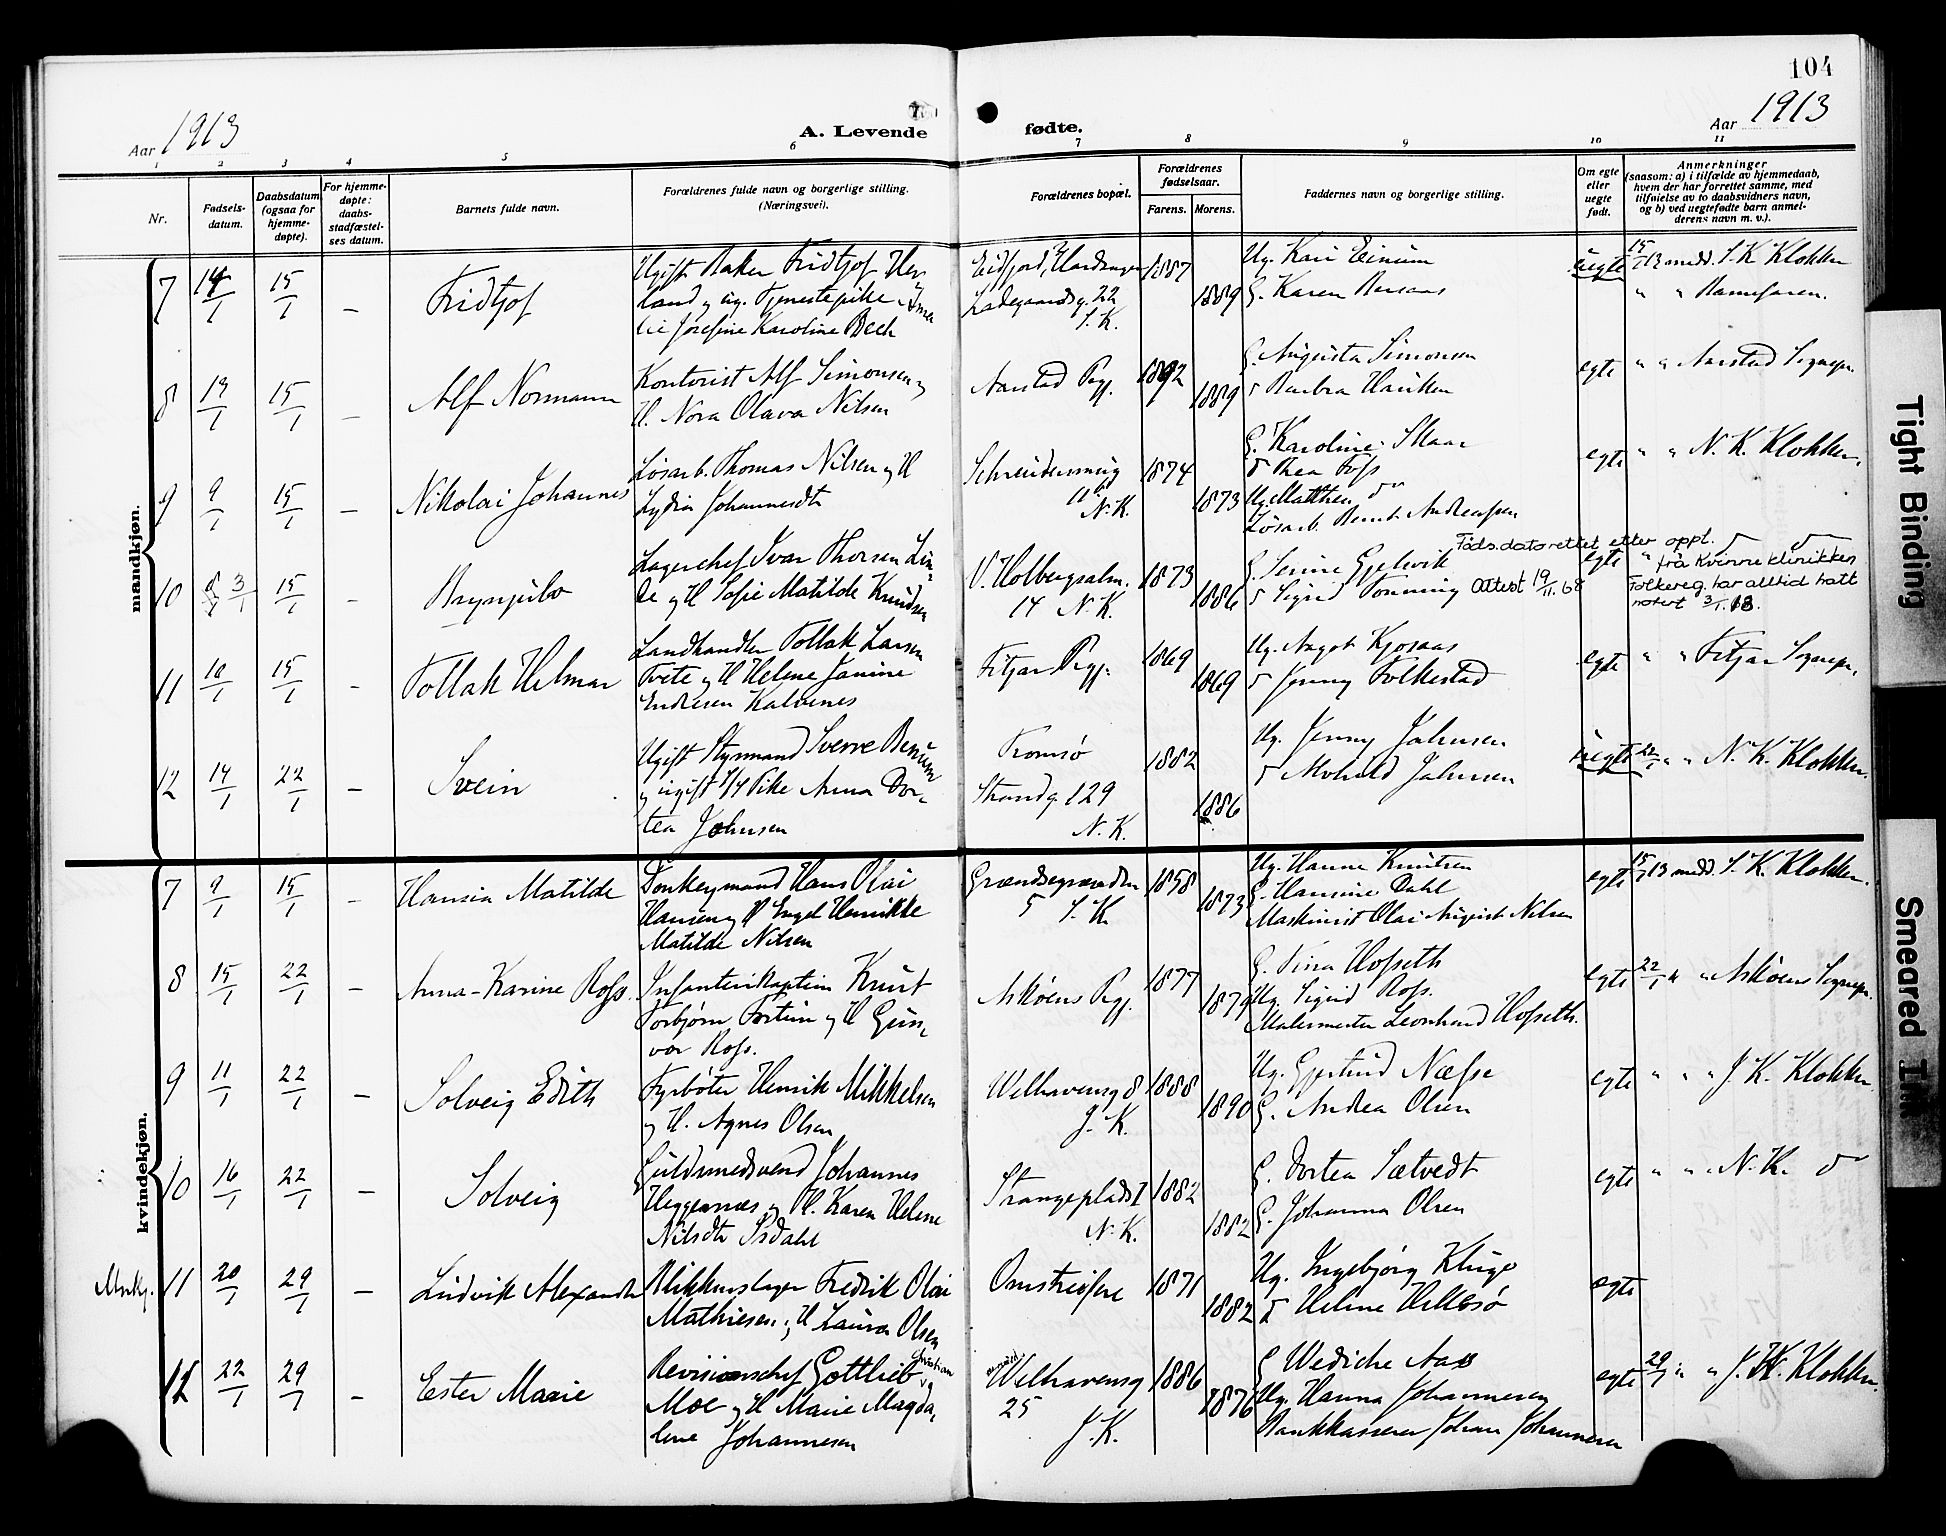 104
Aar 1913
A. Levende
fødte.
Aar 1913
1 2 3 4 5 6 7 8 9 10 11
Nr.
Fødsels-
datum.
Daabsdatum
(ogsaa for
hjemme-
døpte).
For hjemme-
døpte:
daabs-
stadfæstel-
ses datum.
Barnets fulde navn.
Forældrenes fulde navn og borgerlige stilling.
(Næringsvei).
Forældrenes bopæl.
Forældrenes
fødselsaar.
Farens. Morens.
Faddernes navn og borgerlige stilling.
Om egte
eller
uegte
født.
Anmerkninger
(saasom: a) i tilfælde av hjemmedaab,
hvem der har forrettet samme, med
tilføielse av to daabsvidners navn,
og b) ved uegtefødte barn anmel-
derens navn m. v.).
mandkjøn.
7 14/1 15/1 – Fridtjof
Ugift Baker Fridtjof Her-
land og ug. Tjenestepike
Josefine Karoline Bech
Eidfjord, Hardanger
Ladegaardsg. 22
S. K.
1887 1889
Ug. Kari Einum
G. Karen Bersaas
uegte 15/1 13 medd. S. K. Klokker
" "
8 19/1 15/1 – Alf Normann
Kontorist Alf Simonsen og
H. Nora Olava Nilsen
Aarstad Pgj.
1892 1889
G. Augusta Simonsen
Barbra Hauken
egte " " Aarstad Sognepr.
9 9/1 15/1 – Nikolai Johannes
Løsarb. Thomas Nilsen og H
Lydia Johannesdt
N. K.
1874 1873
G. Karoline Skaar
Thea Foss
Ug. Matthea
Løsarb. Bernt Andreassen
egte " " N. K. Klokker.
10 3/1 15/1 – Brynjulv
Lagerchef Ivar Thorsen Lin-
de og H Sofie Matilde Knudsen
V. Holbergsalm.
14 N. K.
1873 1886
G. Serine Gjelsvik
Sigrid Tonning
egte
Føds.dato rettet etter oppl.
frå Kvinneklinikken
Attest 19/11.68
Folkereg. har alltid hatt
notert 3/1.13.
11 10/1 15/1 – Tollak Helmar
Landhandler Tollak Larsen
Tveite og H Helene Janine
Endresen Kalvenes
Fitjar Pgj.
1869 1869
Ug. Aagot Kjosaas
Jenny Folkestad
egte " " Fitjar Sognepr.
12 14/1 22/1 – Svein
Ugift Styrmand Sverre Berum
og ugift Sy Pike Anna Dor-
tea Johnsen
Tromsø
Strandg. 129
N. K.
1882 1886
Ug. Jenny Johnsen
Johnsen
uegte 22/1 " " N. K. Klokker.
kvindekjøn.
7 9/1 15/1 – Hansia Matilde
Donkeymand Hans Olai
Hansen og H Engel Henrikke
Matilde Nilsen
Grændsegrænden
5 S. K.
1858 1873
Ug. Hanne Knutsen
G. Hansine Dahl
Maskinist Olai August Nilsen
egte 15/1 13 medd. S. K. Klokker.
8 15/1 22/1 – Anna-Karine Ross.
Infanterikaptein Knut
Torbjørn Fortun og H Gun-
vor Ross.
Askøens Pgj.
1877 1879
G. Tina Hofseth
Ug. Sigrid Ross.
Malermester Leonhard Hofseth.
egte 22/1 " " Askøens Sognepr.
9 11/1 22/1 – Solveig Edith
Fyrbøter Henrik Mikkelsen
og H. Agnes Olsen
Welhavensg 8
J. K.
1888 1890
Ug. Gjertrud Næsse
G. Andrea Olsen
egte " " J. K. Klokker.
10 16/1 22/1 – Solveig
Guldsmedsvend Johannes
Heggernæs og H. Karen Helene
Nilsdtr Isdahl
Strangeplads 1
N. K.
1882 1882
G. Dortea Sætvedt
G. Johanna Olsen
egte " " N. K.
Mnkj. 11 20/1 29/1 – Ludvik Alexander
Blikkenslager Fredrik Olai
Mathiesen og H Laura Olsen
1871 1882
Ug. Ingebjørg Kluge
Helene Hillesø
egte
12 22/1 29/1 – Ester Marie
Revisionschef Gottlieb Christian
Moe og H Marie Magda-
lene Johannesen
Welhavensg
25
J. K.
1886 1876
G Wediche Aas
Ug. Hanna Johannesen
Bankkasserer Johan Johannesen
egte 29/1 " " J. K. Klokker.
Tight Binding
Smeared Ink